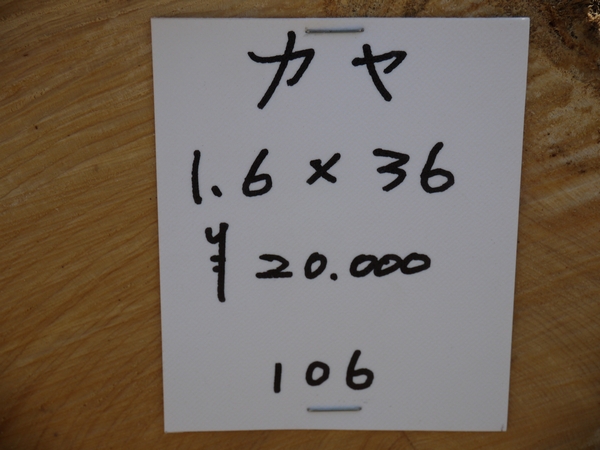 カヤ
1.6 × 36
¥ 20.000
106